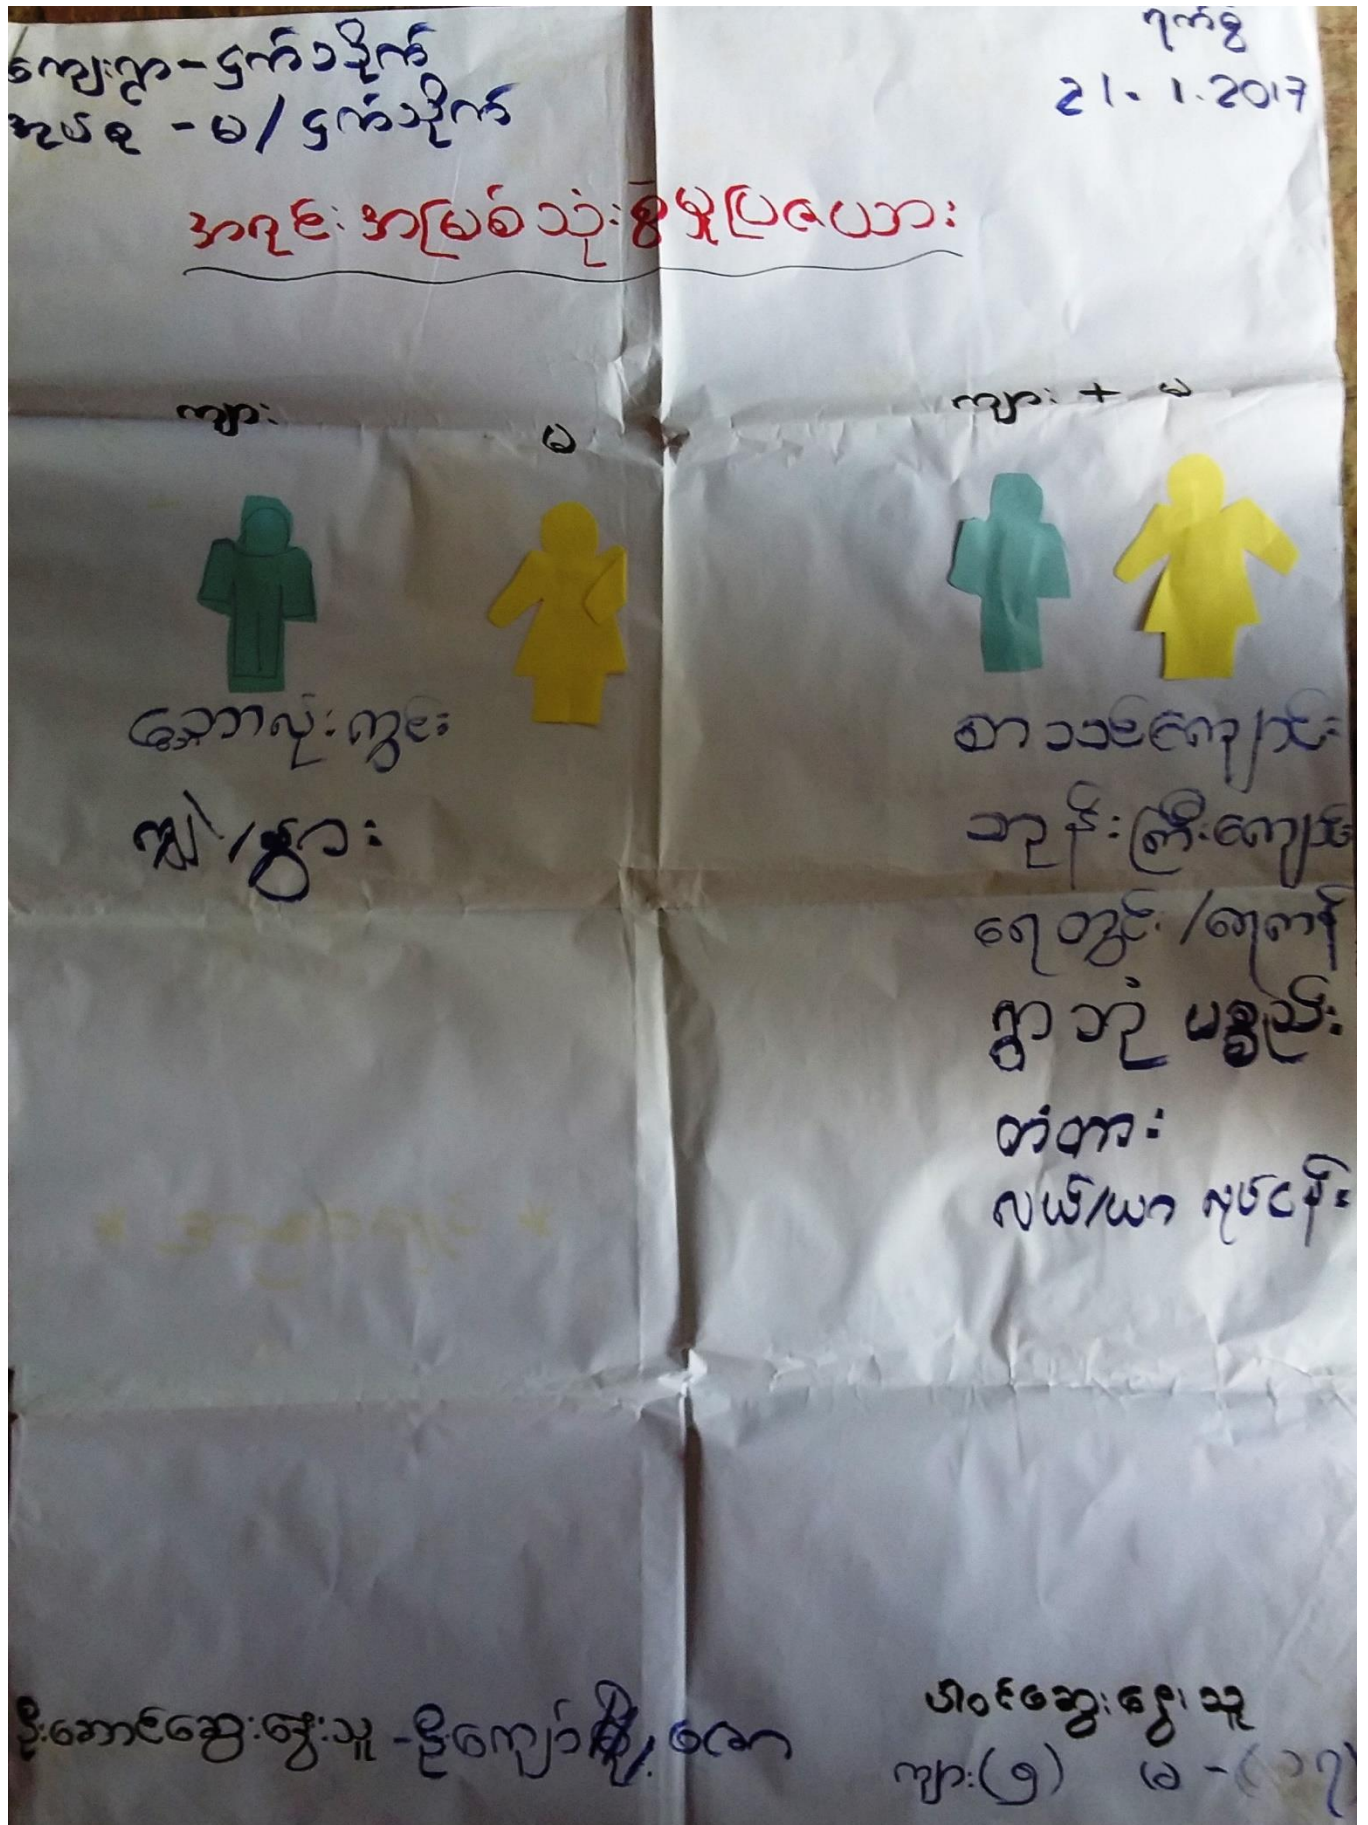 ကျေးရွာ - ငှက်သိုက်
အုပ်စု - မ/ငှက်သိုက်
ရက်စွဲ
21.1.2017
အရင်းအမြစ်သုံးစွဲမှုပြဇယား
ကျား
မ
ကျား + မ
ဘောလုံးကွင်း
ကျွဲ/နွား
စာသင်ကျောင်း
ဘုန်းကြီးကျောင်း
ရေတွင်း/ရေကန်
ရွာဘုံ ပစ္စည်း
တံတား
လယ်/ယာ လုပ်ငန်း
ဦးဆောင်ဆွေးနွေးသူ - ဦးကျော် ဇော
ပါဝင်ဆွေးနွေးသူ
ကျား(၅) မ - (၁၇)